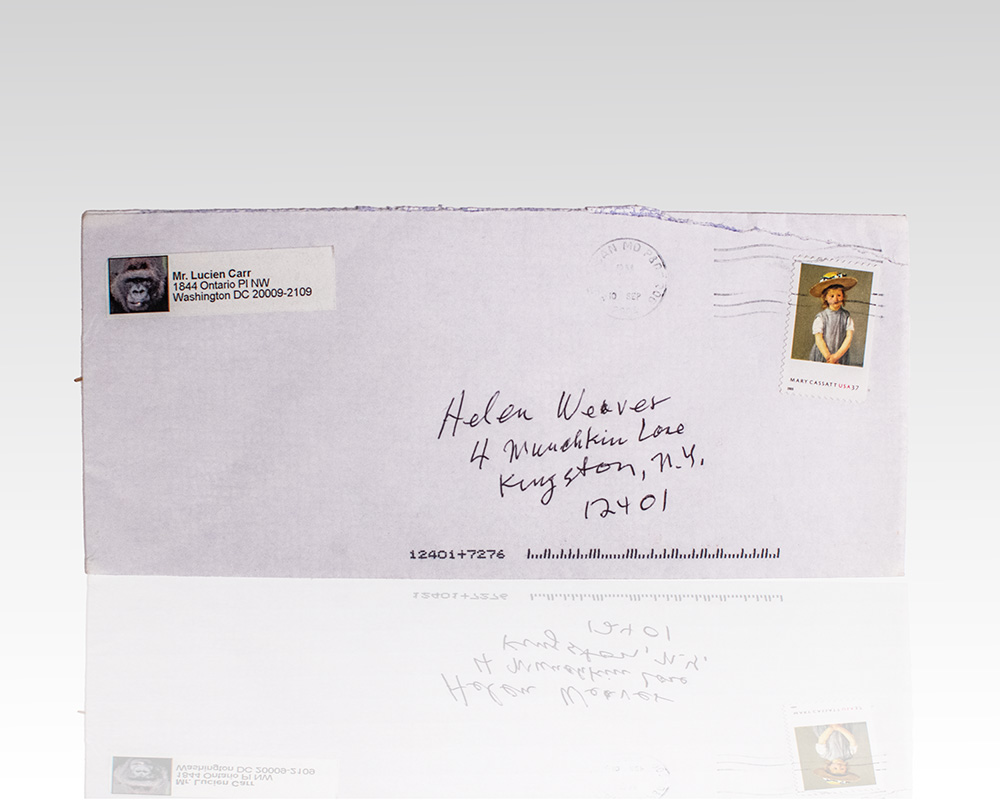 Mr. Lucien Carr
1844 Ontario Pl NW
Washington DC 20009-2109
AN MD P&DC
10 SEP
MARY CASSATT USA 37
Helen Weaver
4 Munchkin Lane
Kingston, N.Y.
12401
12401+7276